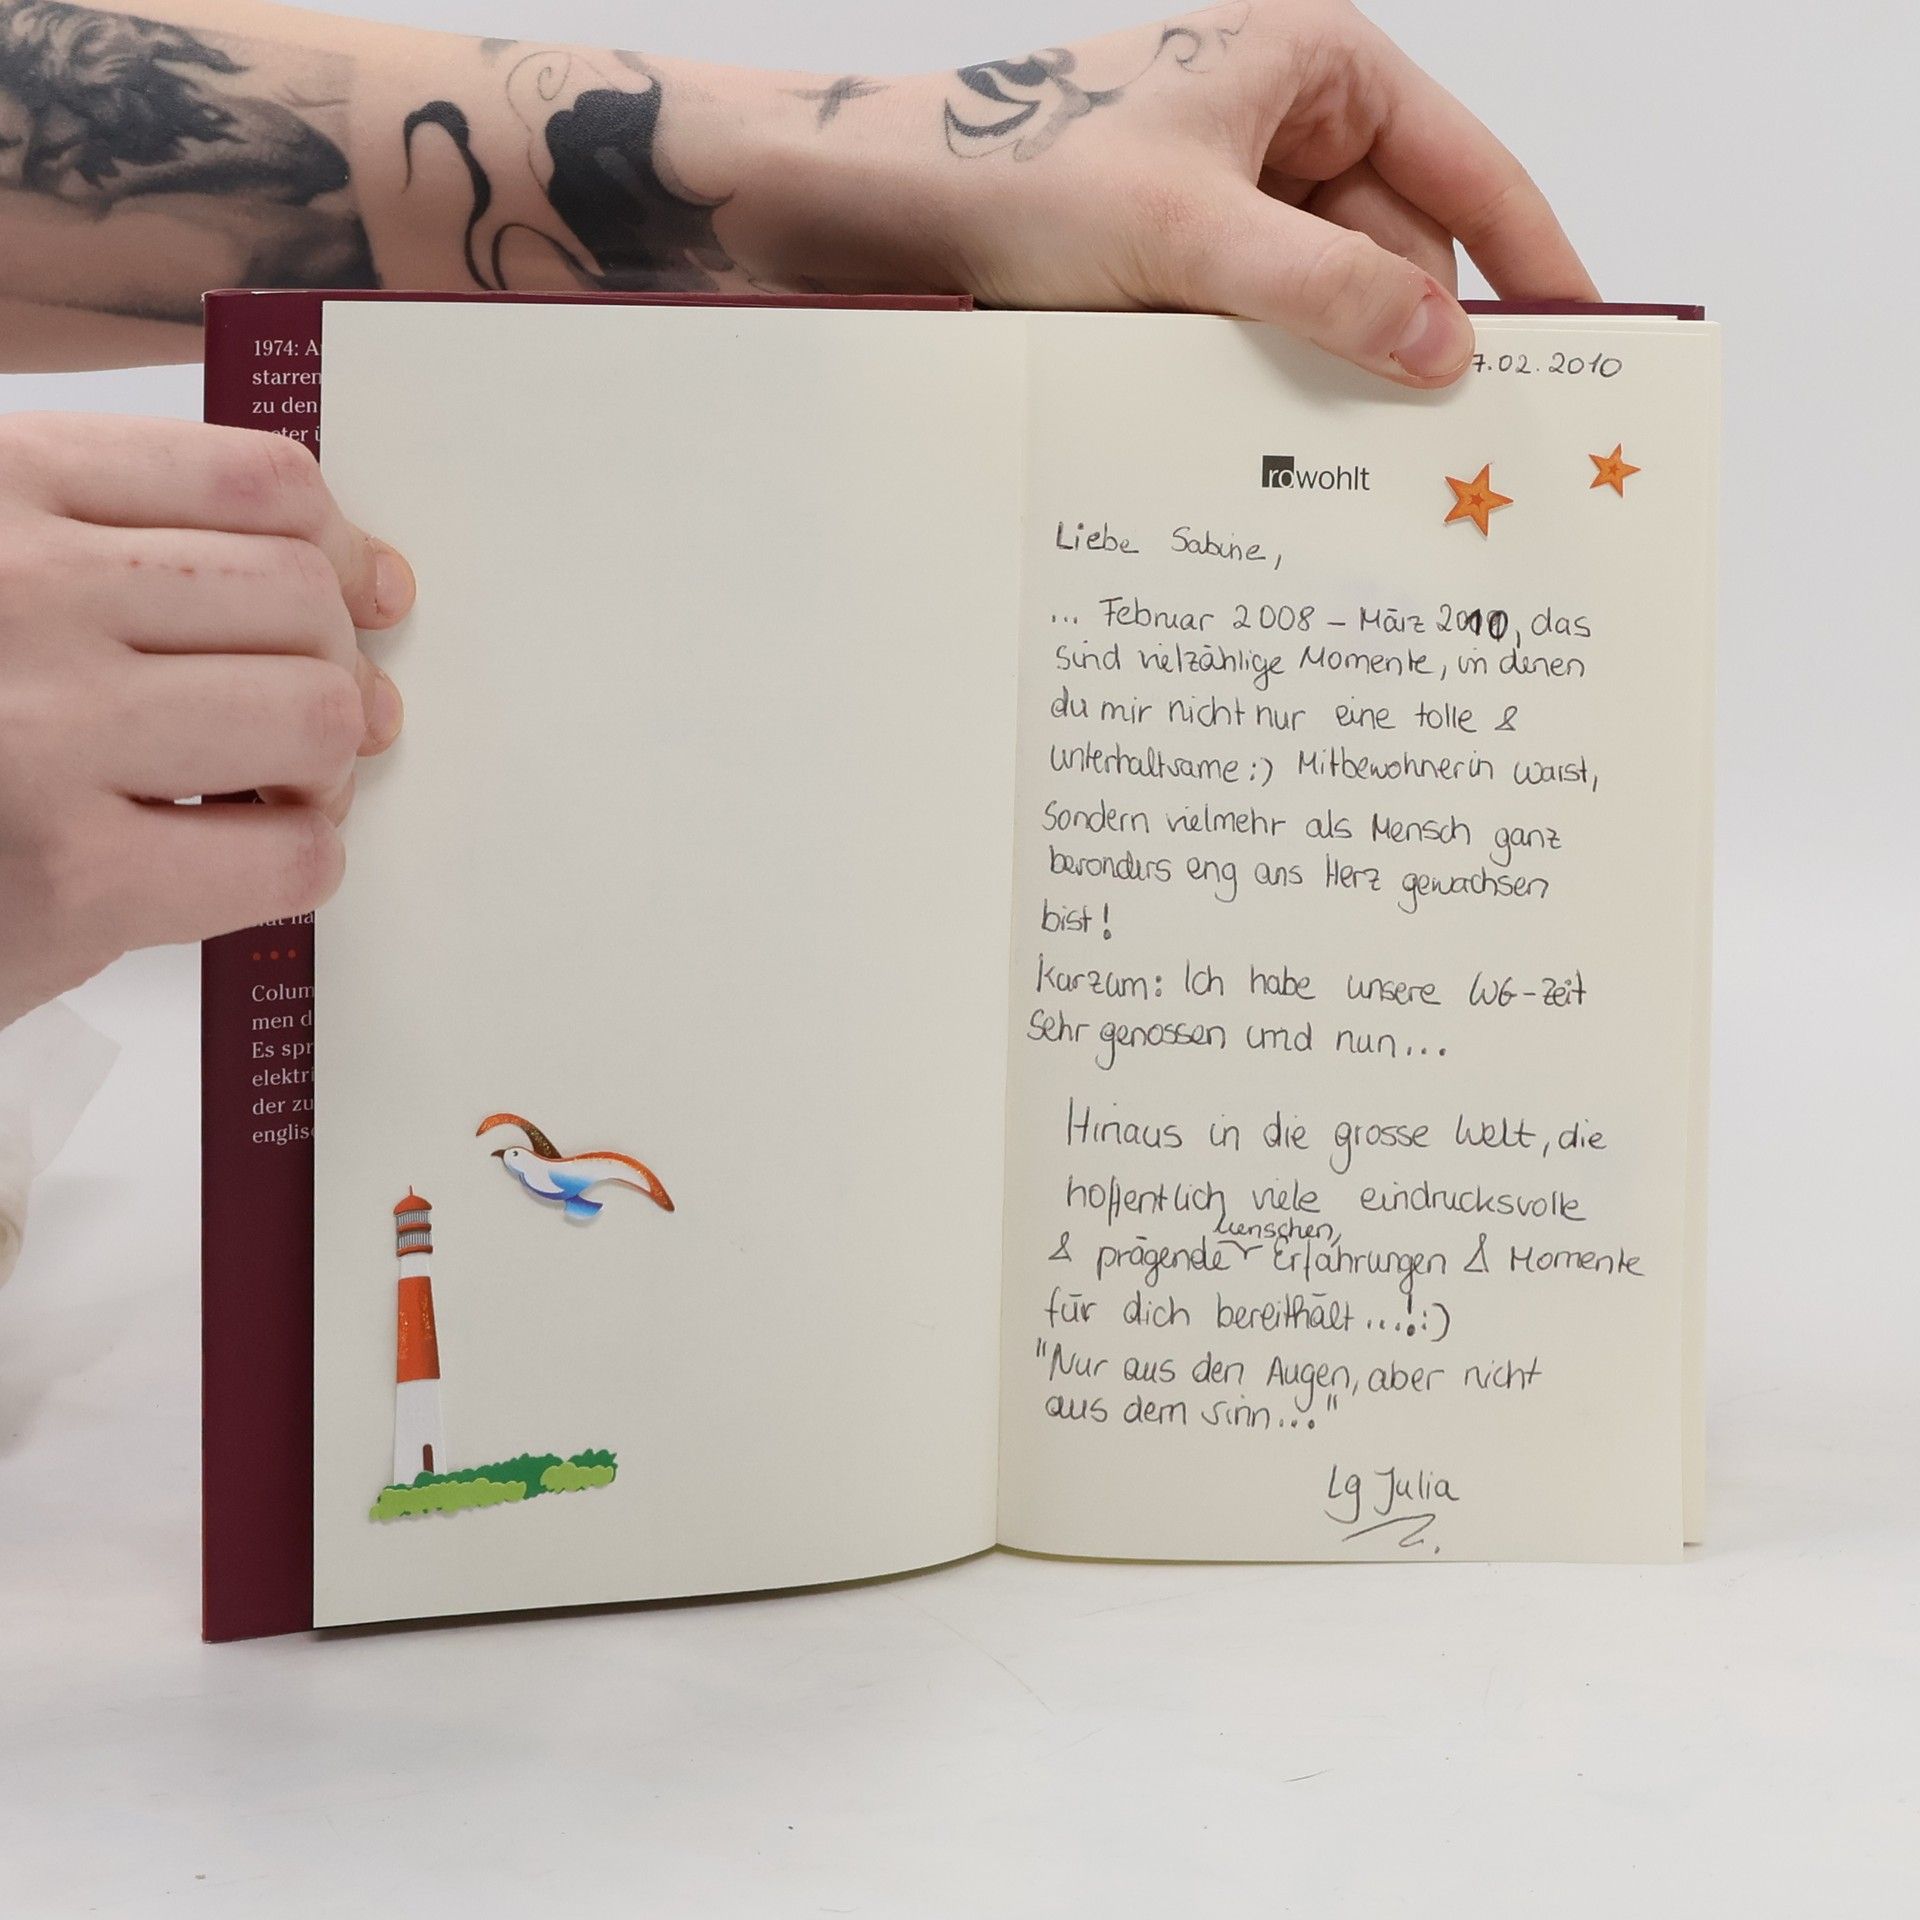 1974: A
starren
zu den
Colum
men d
Es spr
elektri
der zu
englis
7.02.2010
rowohlt
Liebe Sabine,
... Februar 2008 – März 2010, das
sind vielzählige Momente, in denen
du mir nicht nur eine tolle &
unterhaltsame :) Mitbewohnerin warst,
sondern vielmehr als Mensch ganz
besonders eng ans Herz gewachsen
bist!
Kurzum: Ich habe unsere WG-Zeit
sehr genossen und nun...
Hinaus in die grosse Welt, die
hoffentlich viele eindrucksvolle
Menschen,
& prägende Erfahrungen & Momente
für dich bereithält...!:)
"Nur aus den Augen, aber nicht
aus dem Sinn..."
Lg Julia